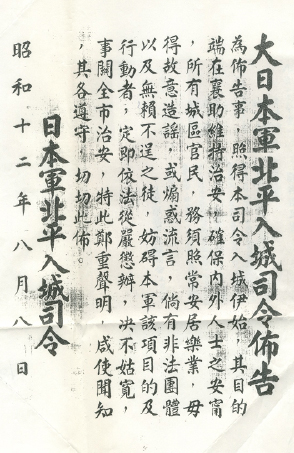 大日本軍北平入城司令佈告
為佈告事、照得本司令入城伊始、其目的
端在襄助維持治安、確保内外人士之安甯
、所有城區官民、務須照常安居樂業、毋
得故意造謡、或煽惑流言、倘有非法團體
以及無賴不逞之徒、妨碍本軍該項目的及
行動者、定即依法從嚴懲辦、决不姑寬、
事關全市治安、特此鄭重聲明、咸使聞知
、其各遵守、切切此佈。
日本軍北平入城司令
昭和十二年八月八日